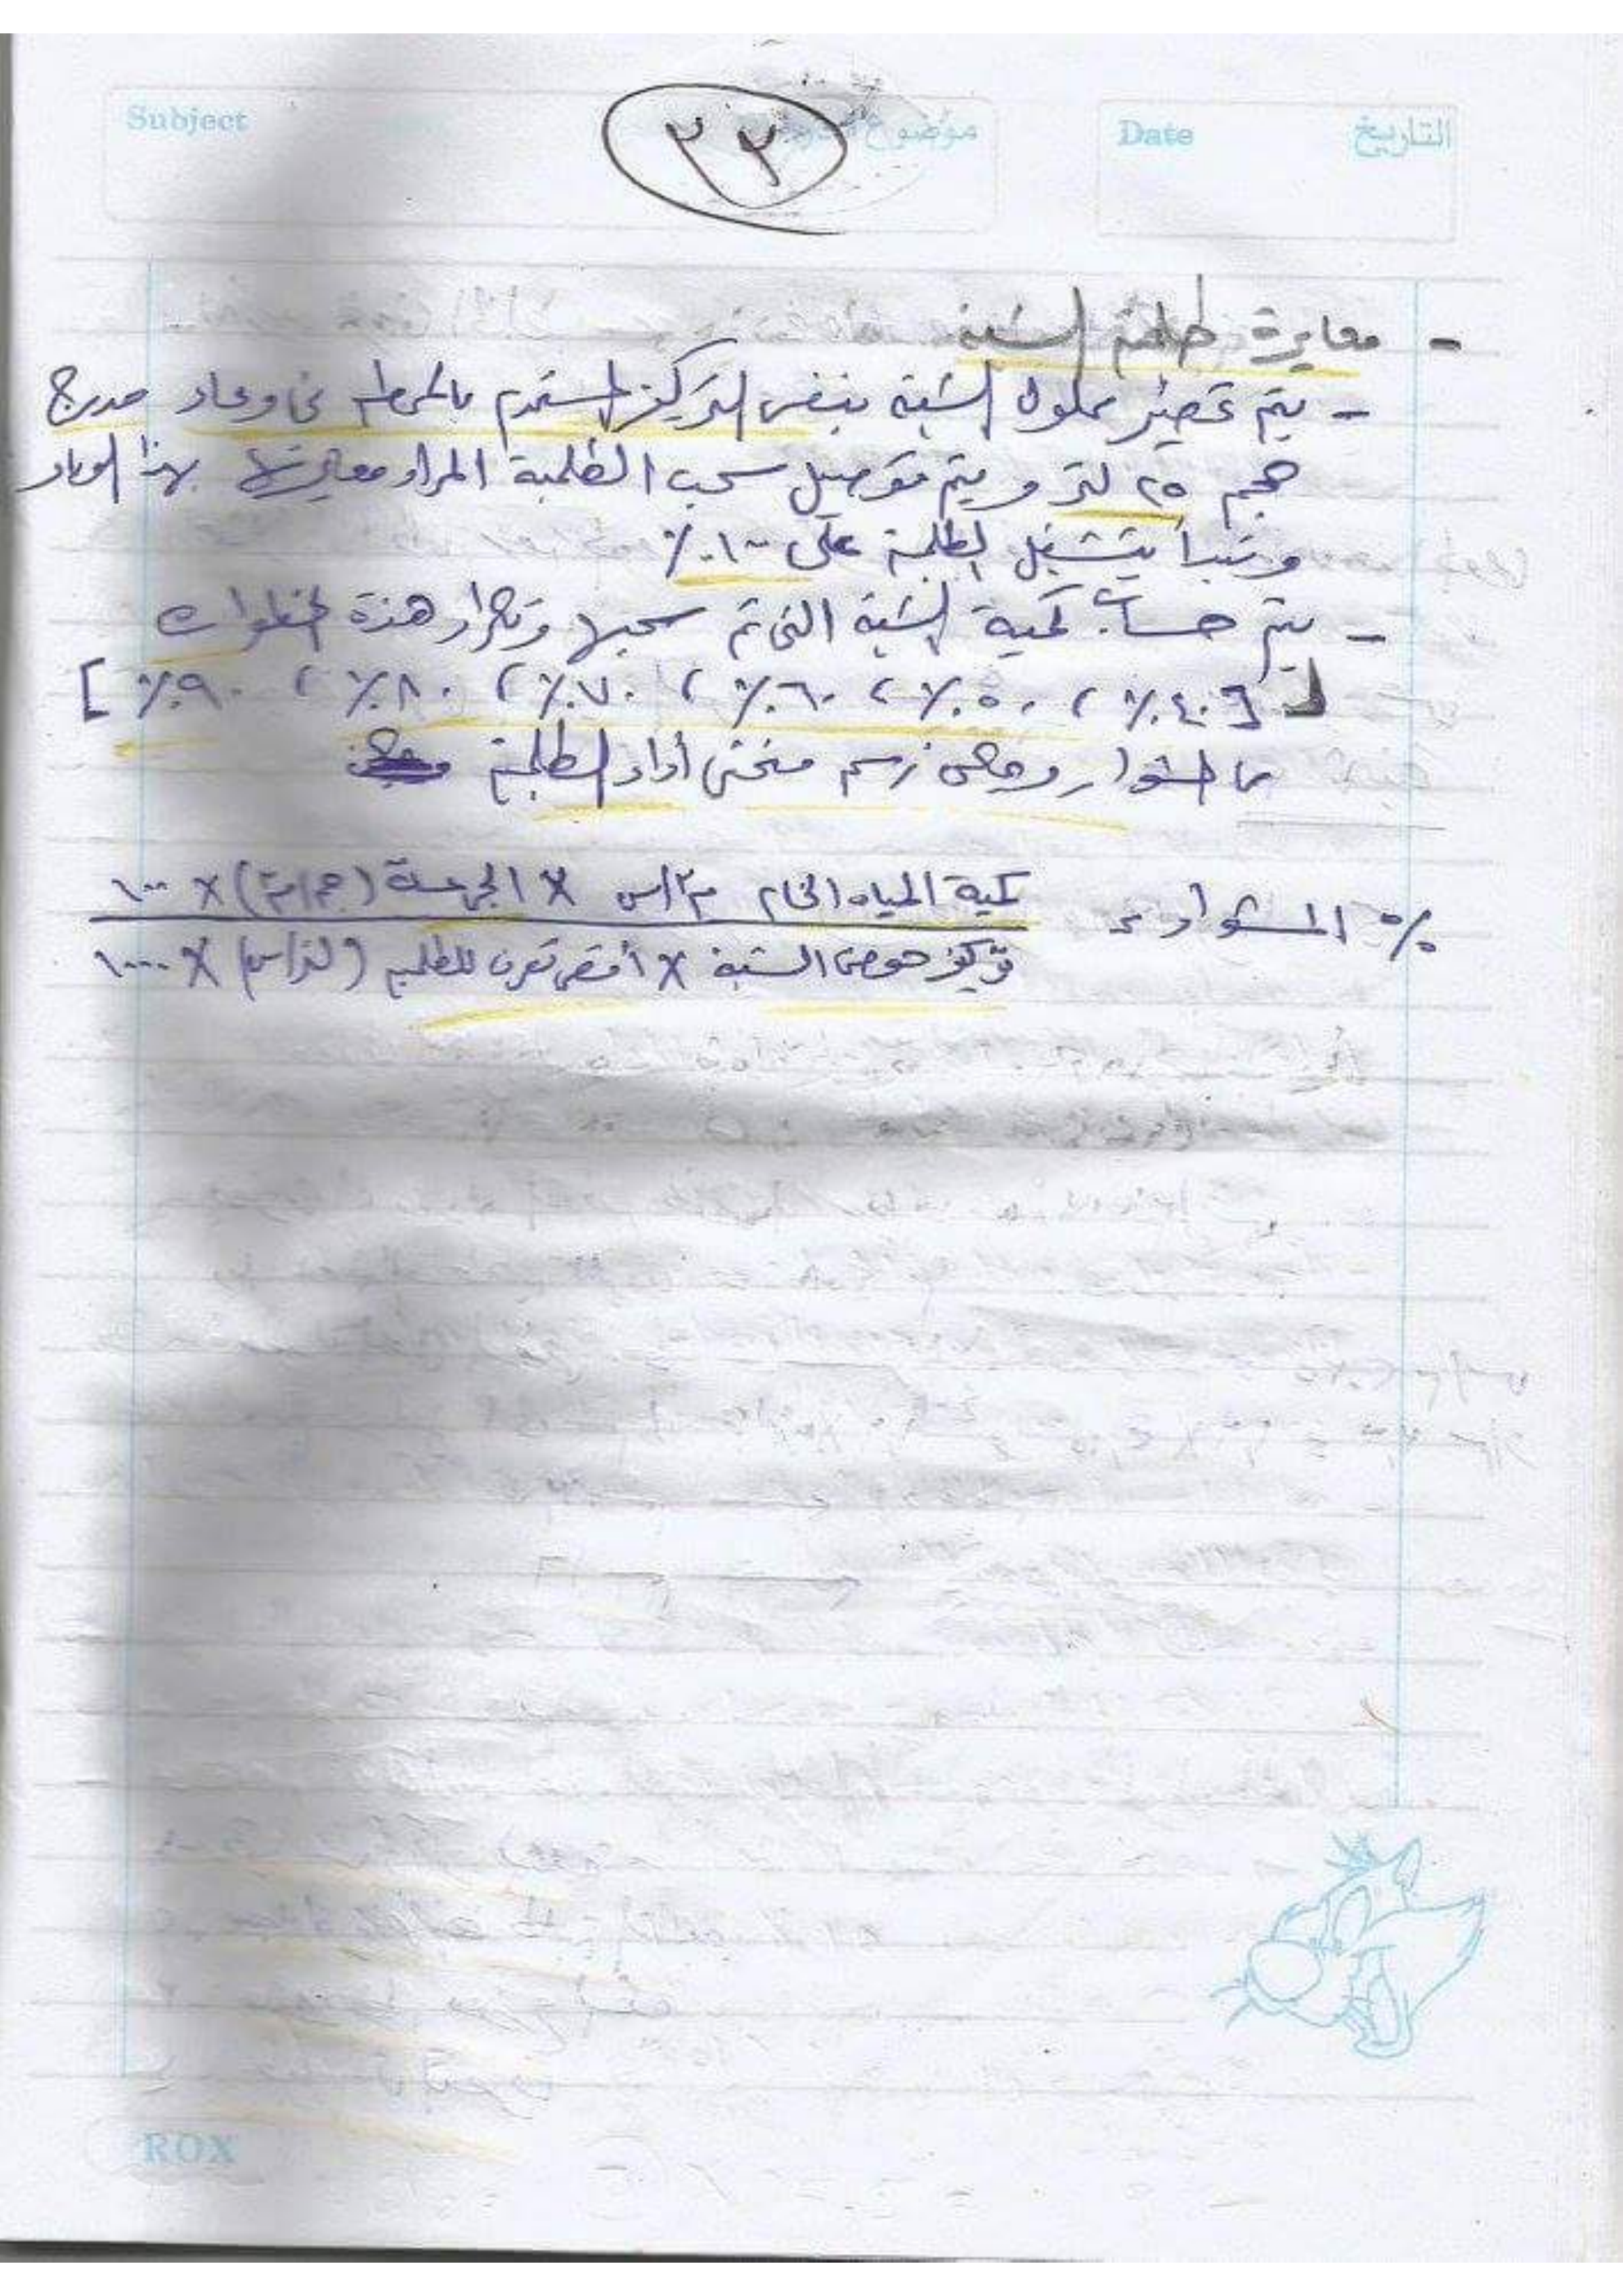 Subject
موضوع
Date
التاريخ
٢٣
- معايرة طلمبة الشبة
- يتم تحضير محلول الشبة بنفس التركيز المستخدم بالمحطة فى وعاء مدرج
حجم ٢٥ لتر و يتم توصيل سحب الطلمبة المراد معايرتها بهذا الوعاء
ونبدأ بتشغيل الطلمبة على ١٠٠٪
- يتم حساب كمية الشبة التى تم سحبها وتكرار هذة الخطوات
[٤٠٪ ، ٥٠٪ ، ٦٠٪ ، ٧٠٪ ، ٨٠٪ ، ٩٠٪]
المشوار ويمكن رسم منحنى أداء الطلمبة
٪ المشوار =
كمية المياه الخام م٣/س × الجرعة (جم/م٣) × ١٠٠
تركيز حوض الشبة × أقصى تصرف للطلمبة (لتر/س) × ١٠٠٠
ROX